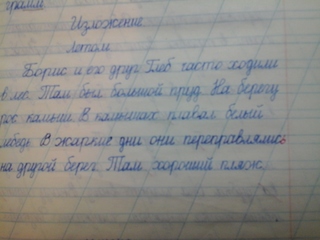 грамм.
Изложение
Летом.
Борис и его друг Глеб часто ходили
в лес. Там был большой пруд. На берегу
рос камыш. В камышах плавал белый
лебедь. В жаркие дни они переправлялись
на другой берег. Там хороший пляж.